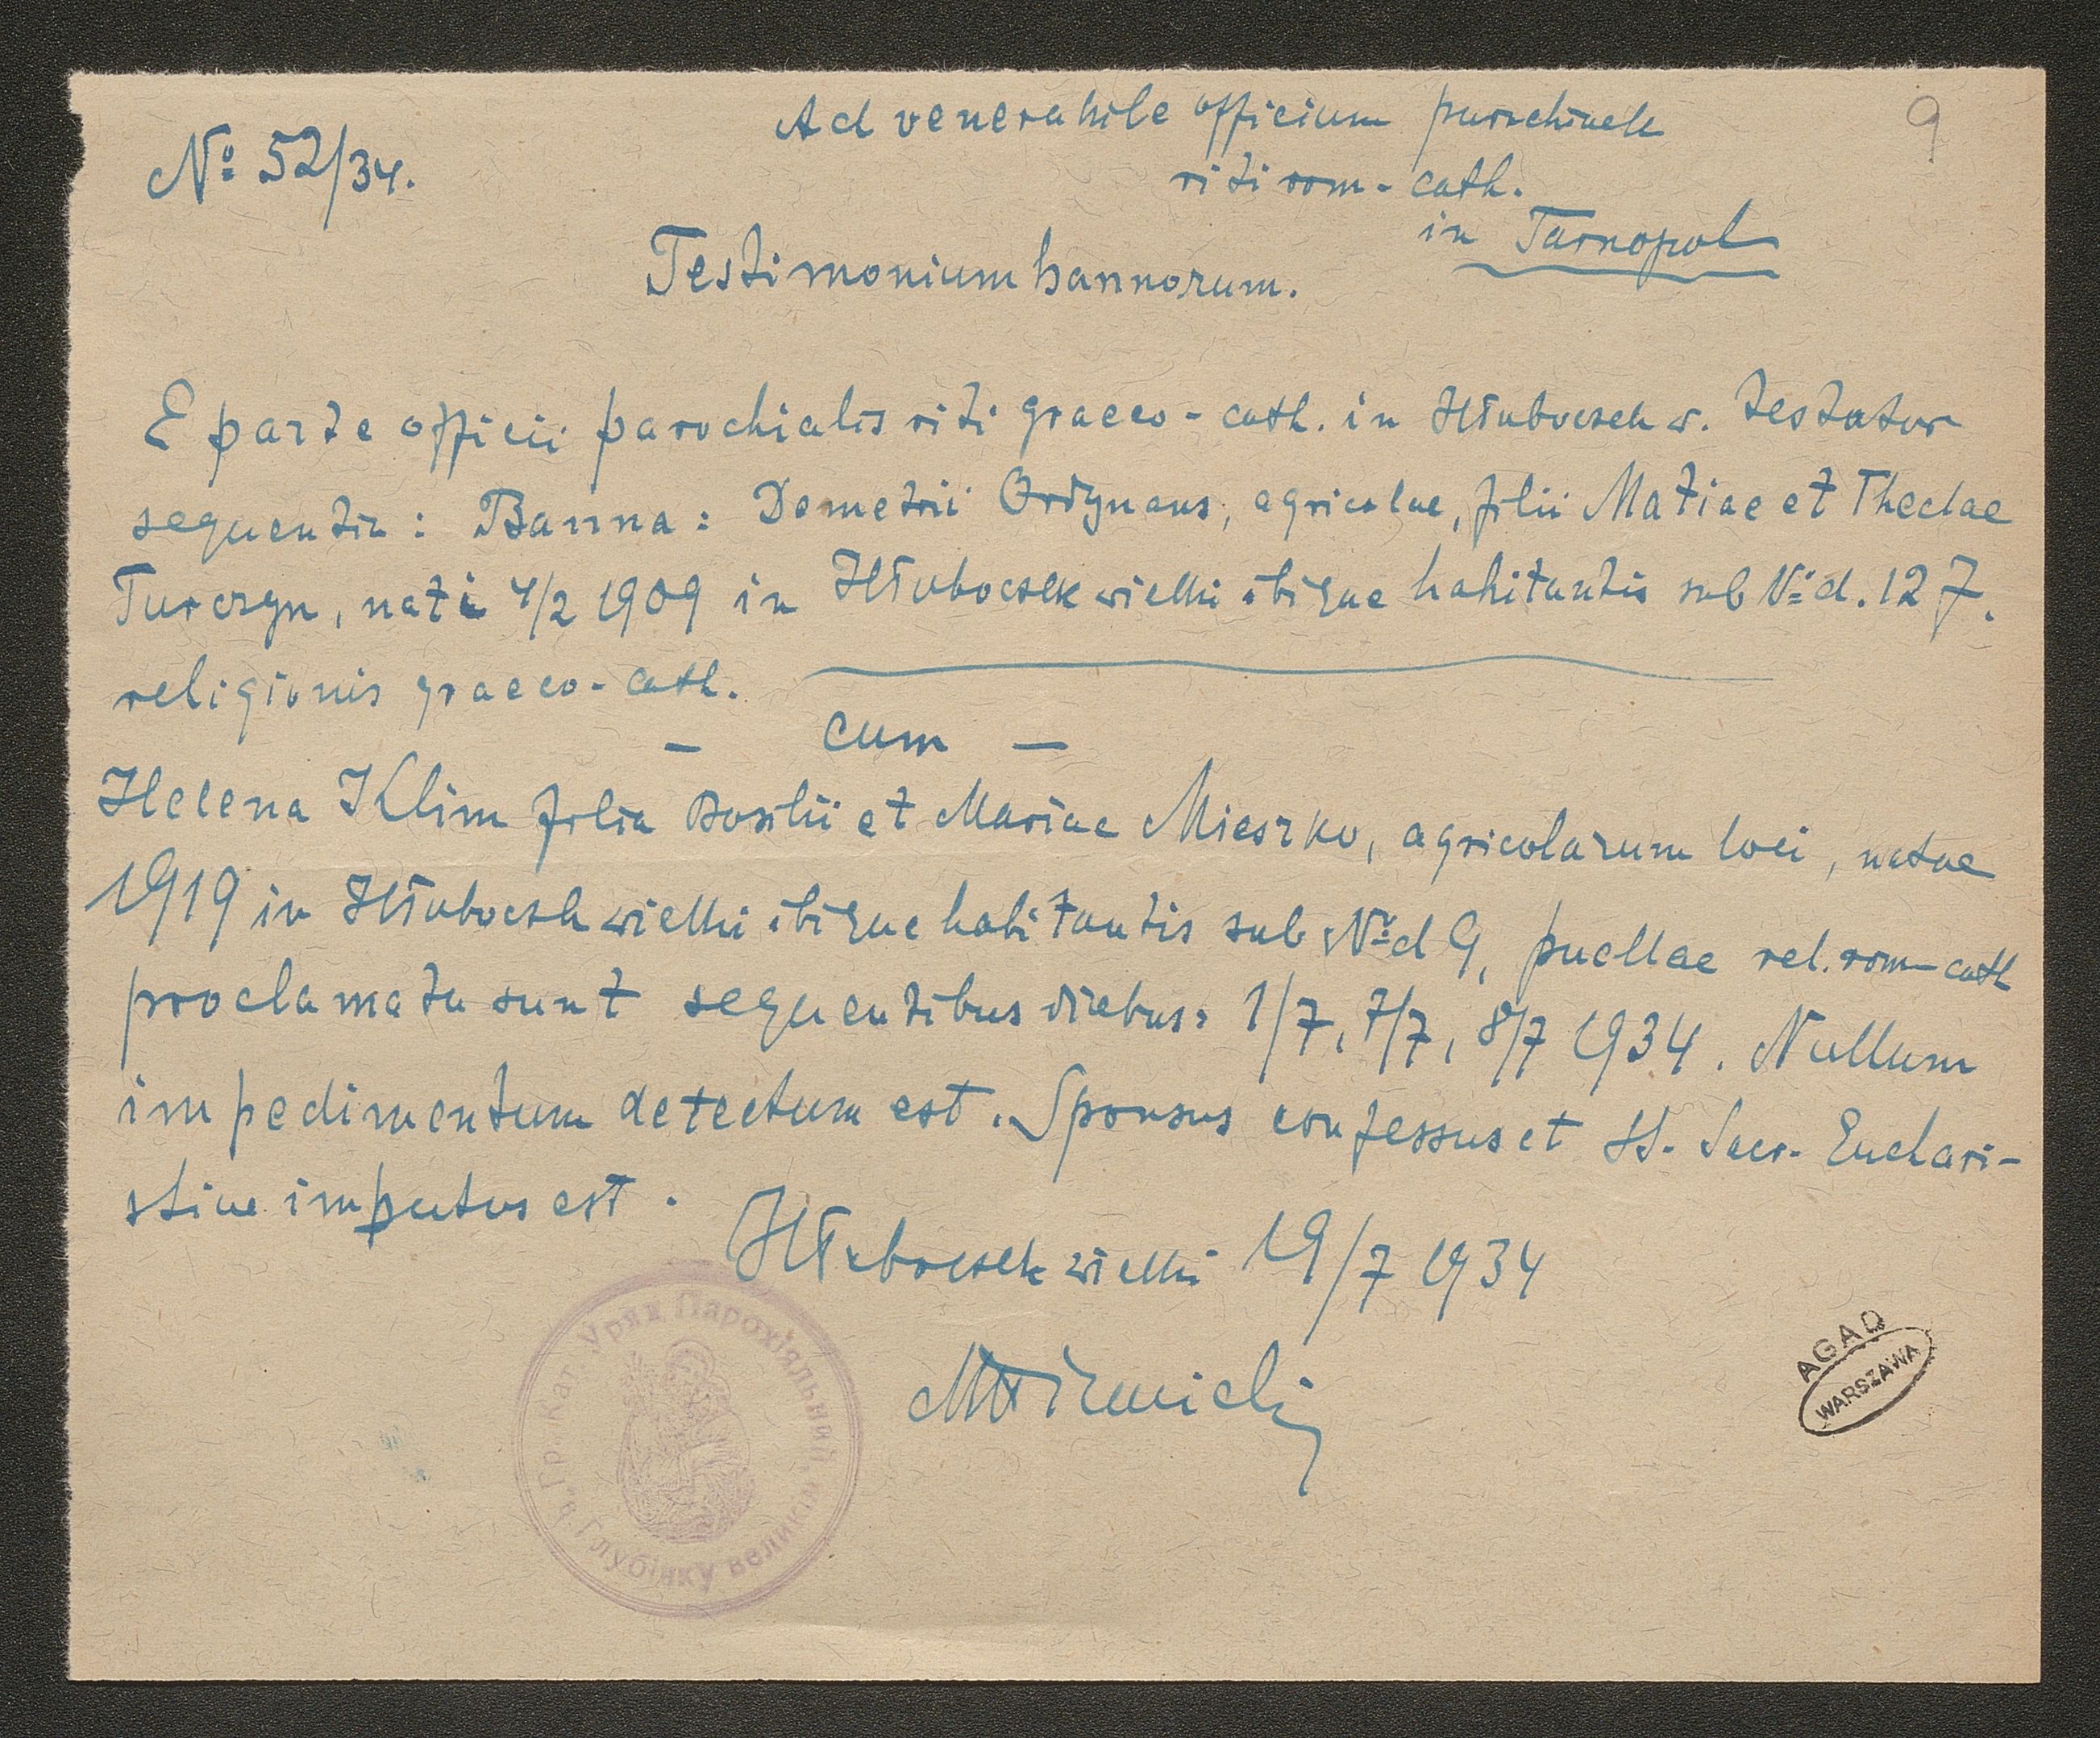 9
Ad venerabile officium parochiale
riti rom-cath.
in Tarnopol
№ 52/34.
Testimonium bannorum.
E parte officii parochialis riti graeco-cath. in Hłuboczek w. testatur
sequentia: Banna: Demetrii Ordynans, agricolae, filii Matiae et Theclae
Turczyn, nati 4/2 1909 in Hłuboczek wielki ibique habitantis sub № d. 127.
religionis graeco-cath.
- cum -
Helena Klim filia Basilii et Mariae Mieszko, agricolarum loci, natae
1919 in Hłuboczek wielki ibique habitantis sub № d 9, puellae rel. rom-cath
proclamata sunt sequentibus diebus: 1/7, 7/7, 8/7 1934. Nullum
impedimentum detectum est. Sponsus confessus et SS. Sacr. Euchari-
stiae est.
Hłuboczek wielki 19/7 1934
Гр. Кат. Уряд Парохіяльний
в Глубічку великім
AGAD
WARSZAWA